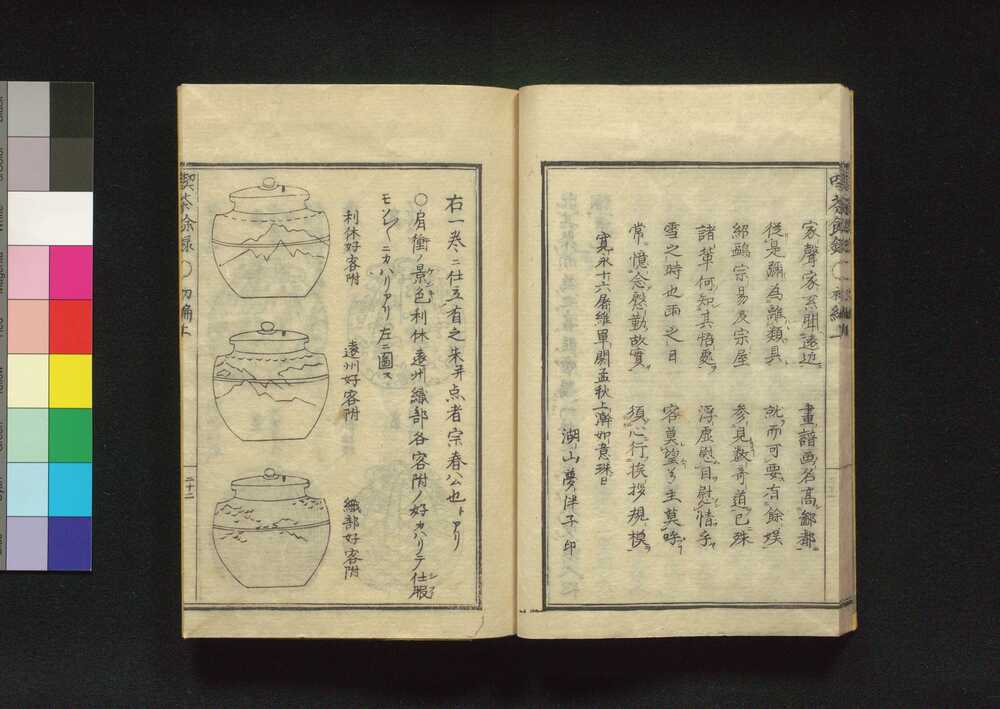 家聲家玄聞遠辺　畫譜画名高鄙都
從是 為離類具　就而可要有餘娯
紹鷗宗易及宗屋　参見数奇道已殊
諸輩何知其悟處　浮虚慰自慰情乎
雪之時也雨之日　容莫望 主莫呼
常憶念慇勤故實　須心行挨拶規模
寛永十六屠維單閼孟秋上澣如意珠日
湖山夢伴子 印
右一巻ニ仕立有之朱并点者宗春公也トアリ
〇肩衝ノ景色利休遠州織部各客附ノ好カハリテ仕服
モソレ〳〵ニカハリアリ左ニ圖ス
利休好客附
遠州好客附
織部好客附
喫茶餘録 〇 初編上
二十二